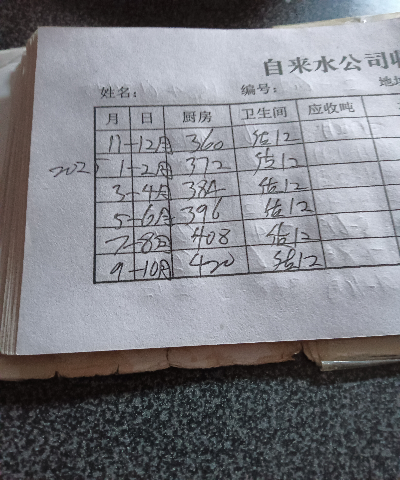 自来水公司收
姓名: 编号: 地
月 日 厨房 卫生间 应收吨
11-12月 360 估12
202 1-2月 372 估12
3-4月 384 估12
5-6月 396 估12
7-8月 408 估12
9-10月 420 估12